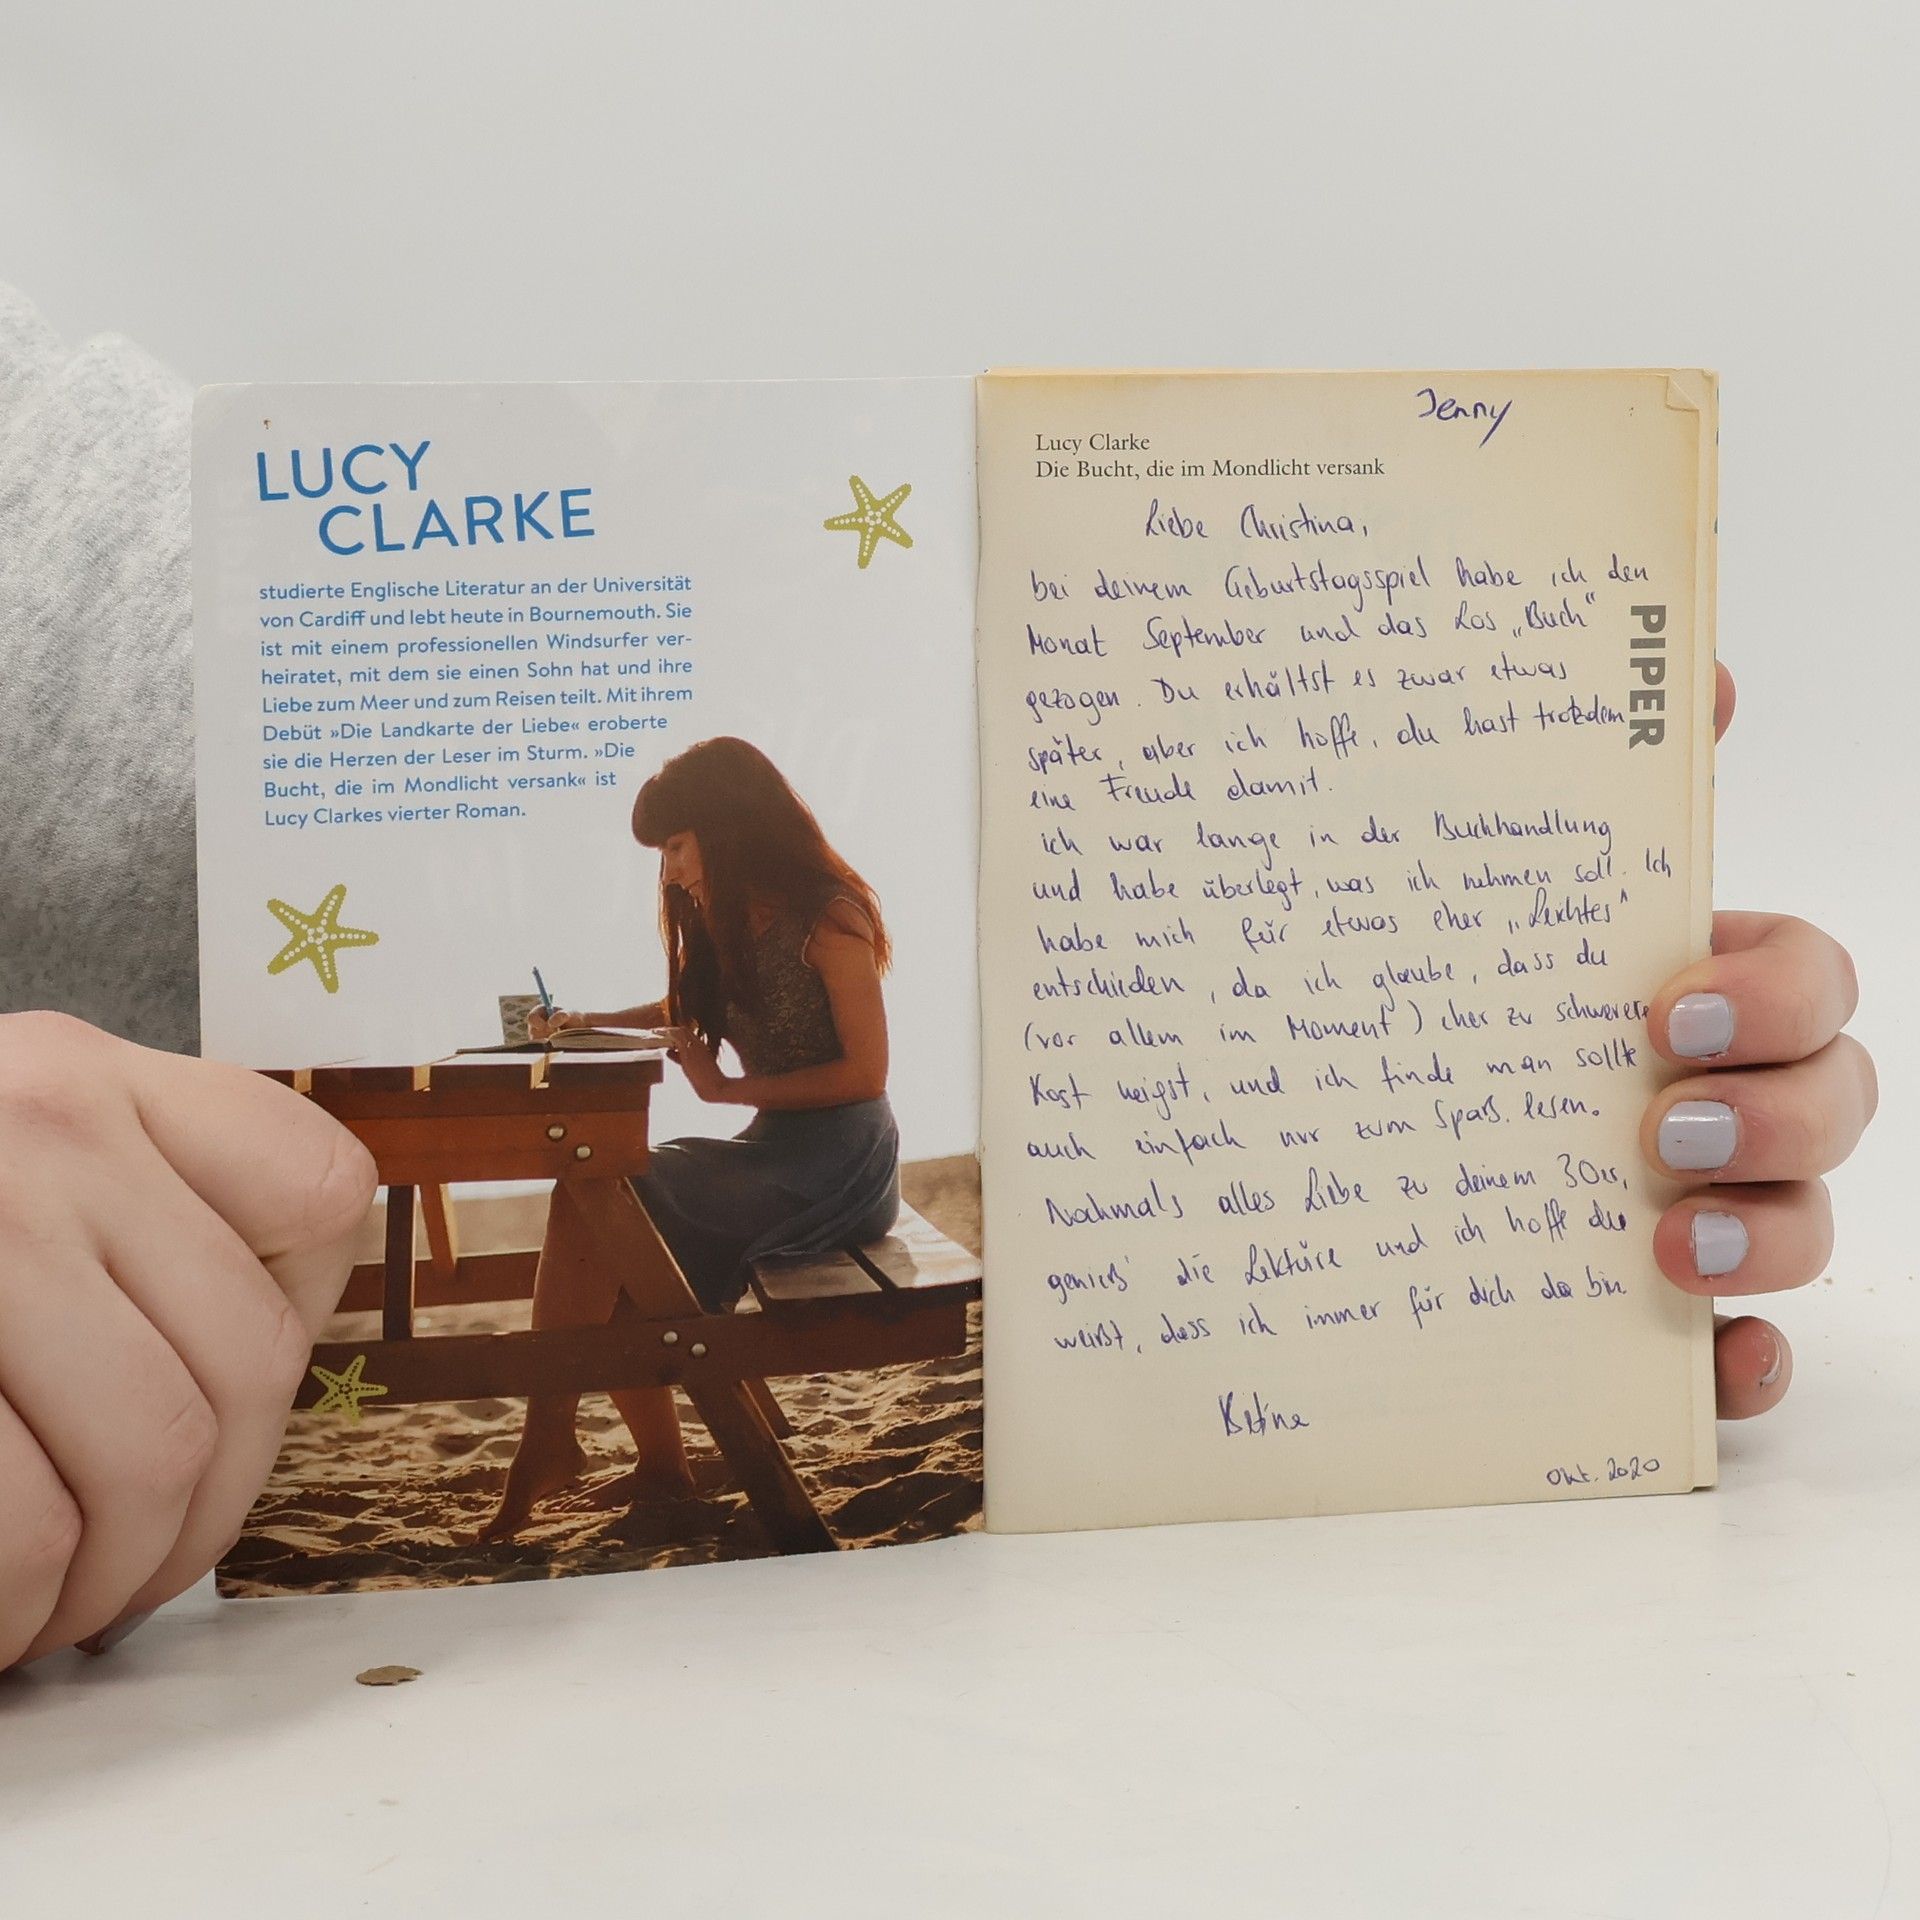 LUCY
CLARKE
studierte Englische Literatur an der Universität
von Cardiff und lebt heute in Bournemouth. Sie
ist mit einem professionellen Windsurfer ver-
heiratet, mit dem sie einen Sohn hat und ihre
Liebe zum Meer und zum Reisen teilt. Mit ihrem
Debüt »Die Landkarte der Liebe« eroberte
sie die Herzen der Leser im Sturm. »Die
Bucht, die im Mondlicht versank« ist
Lucy Clarkes vierter Roman.
Jenny
Lucy Clarke
Die Bucht, die im Mondlicht versank
Liebe Christina,
bei deinem Geburtstagsspiel habe ich den
Monat September und das Los „Buch“
gezogen. Du erhältst es zwar etwas
später, aber ich hoffe, du hast trotzdem
eine Freude damit.
ich war lange in der Buchhandlung
und habe überlegt, was ich nehmen soll. Ich
habe mich für etwas eher „Leichtes“
entschieden, da ich glaube, dass du
(vor allem im Moment) eher zu schwerere
Kost neigst, und ich finde man sollte
auch einfach nur zum Spaß lesen.
Nochmals alles Liebe zu deinem 30er,
genieß' die Lektüre und ich hoffe du
weißt, dass ich immer für dich da bin.
Betina
Okt. 2020
PIPER